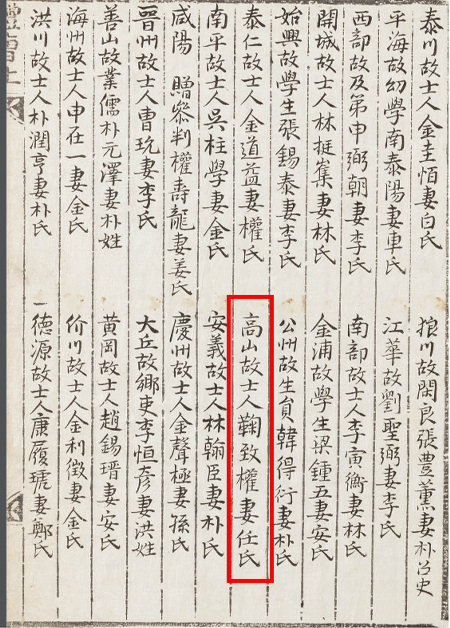 泰川故士人金圭恒妻白氏 狼川故閑良張豊薰妻朴召史
平海故幼學南泰陽妻車氏 江華故劉聖弼妻李氏
西部故及第申弼朝妻李氏 南部故士人李寅衡妻林氏
開城故士人林挺嶪妻林氏 金浦故學生梁鍾五妻安氏
始興故學生張錫泰妻李氏 公州故生員韓得衍妻朴氏
泰仁故士人金道益妻權氏 高山故士人鞠致權妻任氏
南平故士人吳柱學妻金氏 安義故士人林翰臣妻朴氏
咸陽 贈參判權壽龍妻姜氏 慶州故士人金聲極妻孫氏
晉州故士人曺玧妻李氏 大丘故鄉吏李恒彦妻洪姓
善山故業儒朴元澤妻朴姓 黃岡故士人趙錫瑨妻安氏
海州故士人申在一妻金氏 价川故士人金利徵妻金氏
洪川故士人朴潤亨妻朴氏 德源故士人康履琥妻鄭氏